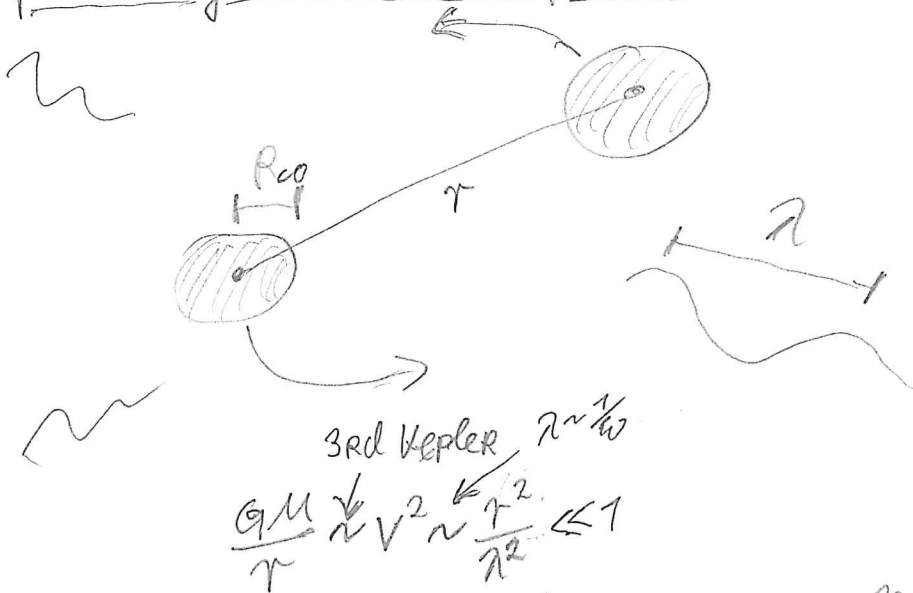 R_co
r
λ
3Rd Kepler λ~1/ω
GM/r ~ v² ~ r²/λ² << 1